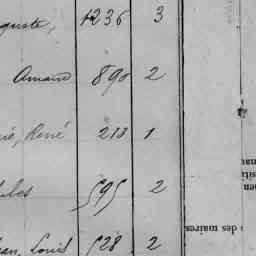 guste, 1236 3
Amand 890 2
René 213 1
les 595 2
ean, Louis 528 2
des maires